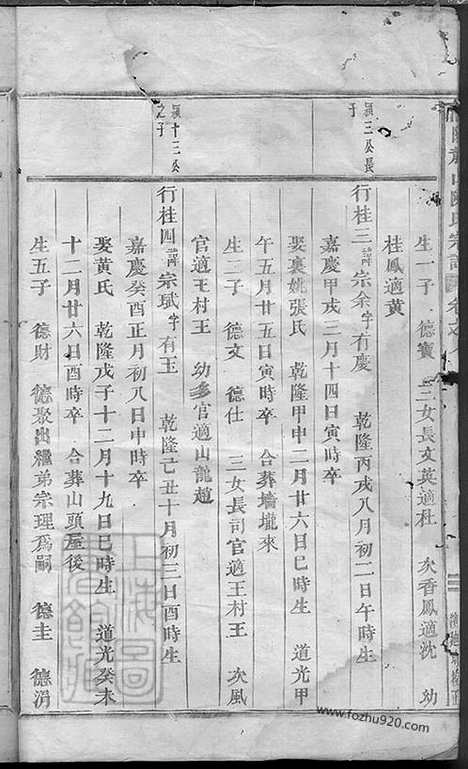 生一子　德寶　三女長文英適杜　次香鳳適沈　幼
桂鳳適黃
穎三公長
子
行桂三諱宗余字有慶　乾隆丙戌八月初二日午時生
嘉慶甲戌三月十四日寅時卒
娶裏姚張氏　乾隆甲申二月廿六日巳時生　道光甲
午五月廿五日寅時卒　合葬墻壠來
生二子　德文　德仕　三女長司官適王村王　次風
官適王村王　幼多官適山龍趙
穎十三公
之子
行桂四諱宗珷字有玉　乾隆己丑十月初三日酉時生
嘉慶癸酉正月初八日申時卒
娶黃氏　乾隆戊子十二月十九日巳時生　道光癸未
十二月廿六日酉時卒　合葬山頭屋後
生五子　德財　德聚出繼弟宗理為嗣　德圭　德涓
上海圖書館藏
www.fozhu920.com